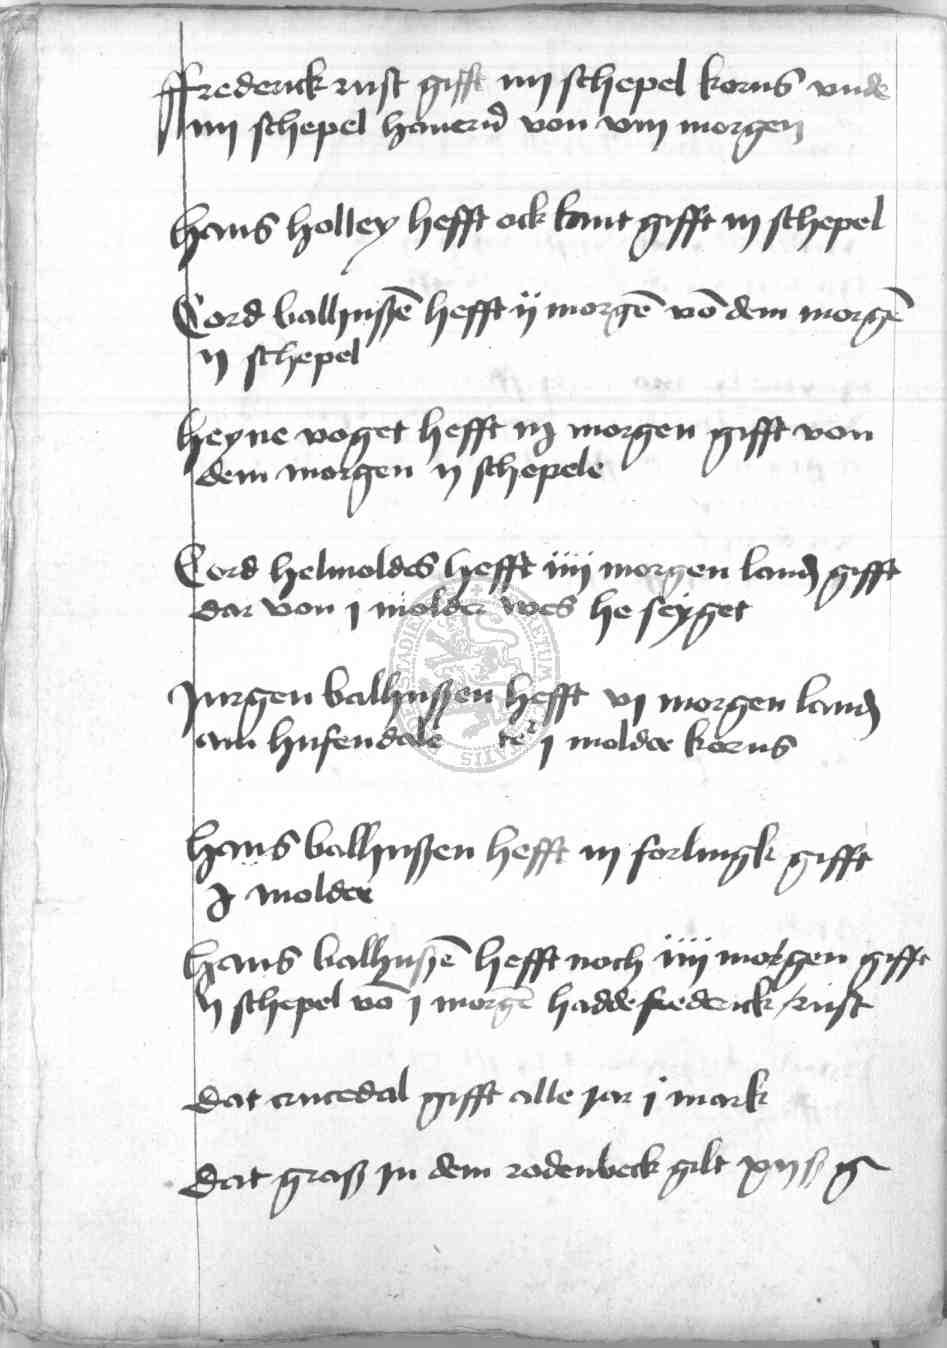 Frederick rust gifft iiij schepel korns vnde
iiij schepel hauern von viij morgen
Hans holley hefft ock lant gifft iij schepel
Cord ballhußē hefft ij morgē vō dem morgē
ij schepel
Heyne voget hefft iij morgen gifft von
dem morgen ij schepele
Cord helmoldes hefft iiij morgen land gifft
dar von j molder wes he seyget
Jurgen ballhußen hefft vj morgen land
am husendale j molder korns
Hans ballhußen hefft iij forlingk gifft
j molder
Hans ballhußē hefft noch iiij morgen gifft
ij schepel vō j morgē hadde frederick rust
Dat crucedal gifft alle jar j mark
Dat graß jn dem rodenbeck gilt